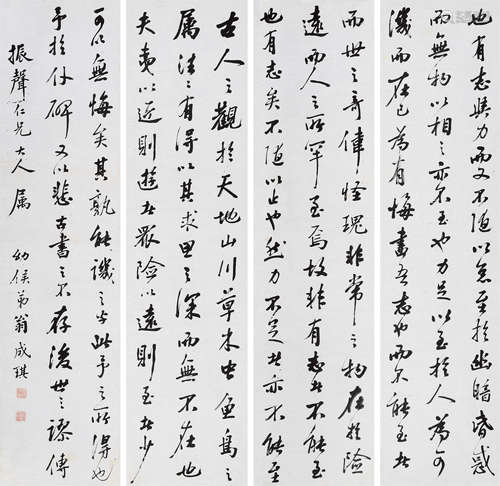 古人之觀於天地山川草木虫魚鳥之
属往之有得以其求思之深而無不在也
夫夷以近則遊者眾險以遠則至者少
而世之奇偉怪瑰非常之物在於險
遠而人之所罕至焉故非有志者不能至
也有志矣不随以止也然力不足者亦不能至
也有志與力而又不随以怠至於幽暗昏惑
而無物以相之亦不至也力足以至於人為可
譏而在己為有悔盡吾志也而不能至者
可以無悔矣其孰能譏之乎此予之所得也
予於仆碑又以悲古書之不存後世之謬傳
振聲仁兄大人属
幼侯弟翁成琪